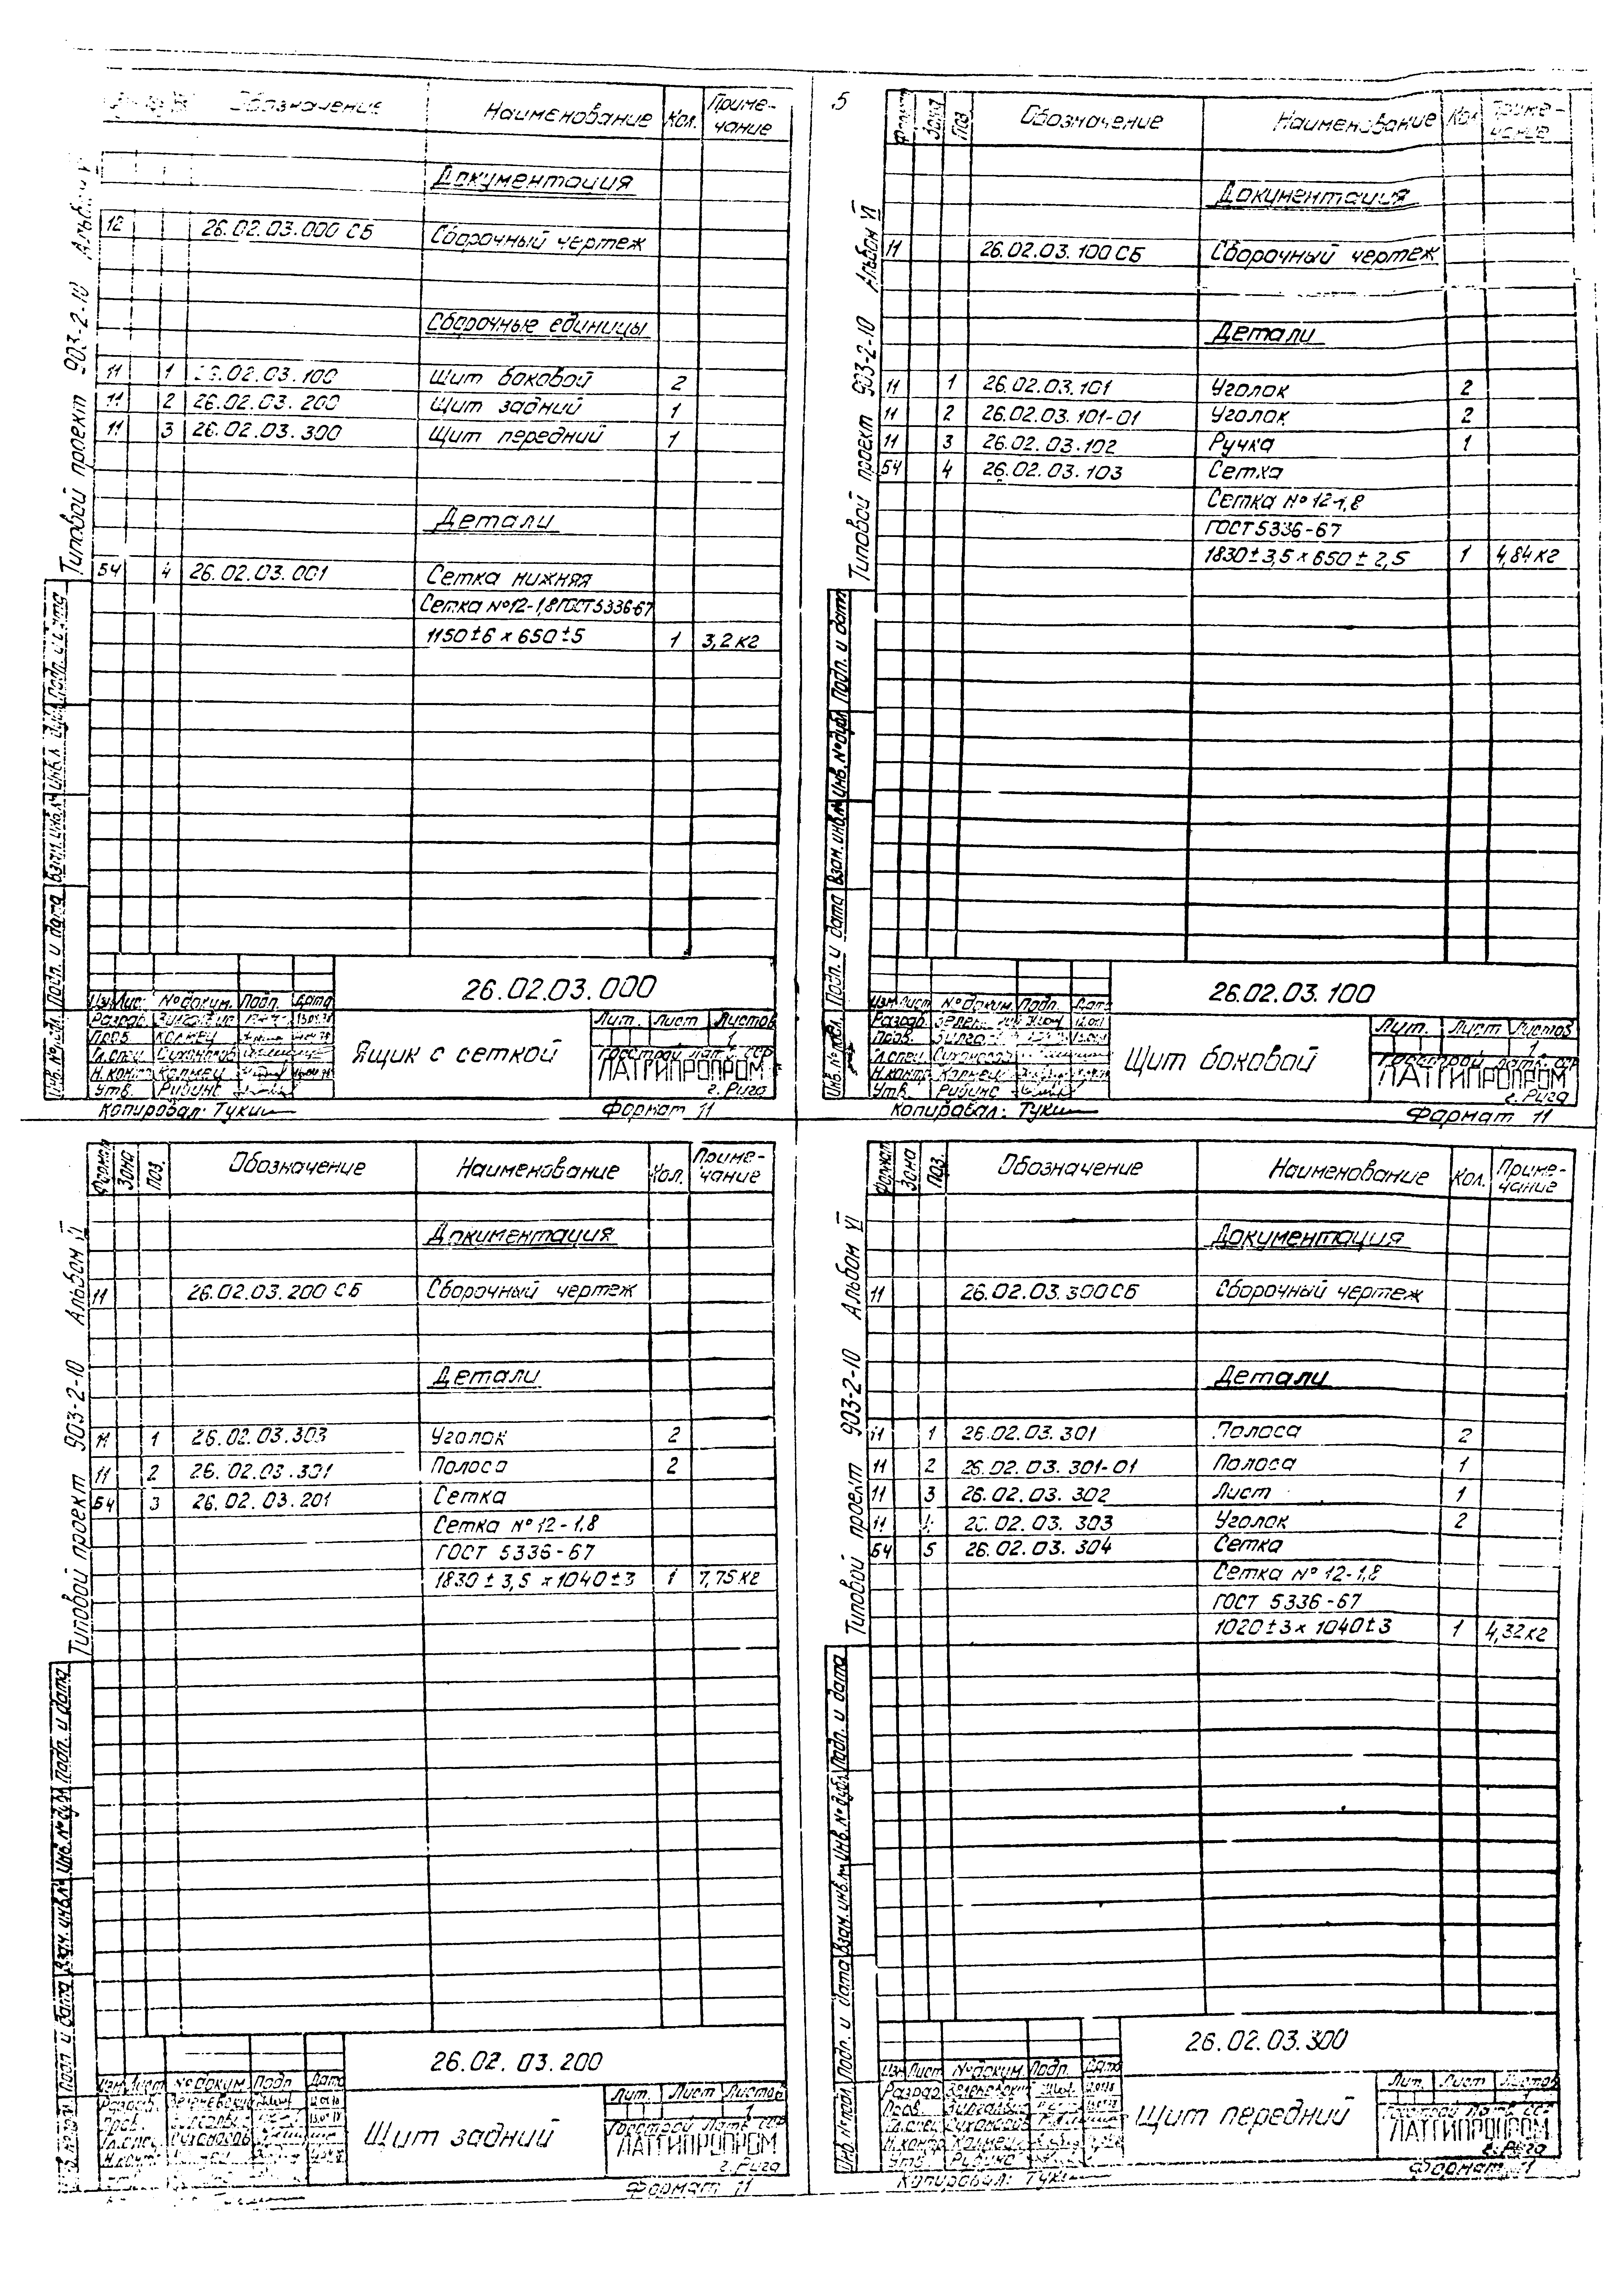 Обозначение Наименование Кол. Приме-
чание
Документация
12 26.02.03.000 СБ Сборочный чертеж
Сборочные единицы
11 1 26.02.03.100 Щит боковой 2
11 2 26.02.03.200 Щит задний 1
11 3 26.02.03.300 Щит передний 1
Детали
54 4 26.02.03.001 Сетка нижняя
Сетка №12-1,8 ГОСТ 5336-67
1150±6 х 650±5 1 3,2 кг
Типовой проект 903-2-10
Подп. и дата
26.02.03.000
Изм Лис. № докум. Подп. Дата
Разраб.
Пров. Калнец
Гл.спец. Суханов
Н.контр Калнец
Утв. Рубинс
Ящик с сеткой
Лит. Лист Листов
1
Госстрой латв. ССР
ЛАТГИПРОПРОМ
г. Рига
Копировал: Туки
Формат 11
5
Формат Зона Поз. Обозначение Наименование Кол Приме-
чание
Документация
11 26.02.03.100 СБ Сборочный чертеж
Детали
11 1 26.02.03.101 Уголок 2
11 2 26.02.03.101-01 Уголок 2
11 3 26.02.03.102 Ручка 1
54 4 26.02.03.103 Сетка
Сетка №12-1,8
ГОСТ 5336-67
1830±3,5 х 650±2,5 1 4,84 кг
Типовой проект 903-2-10 Альбом VI
Инв. № подл. Подп. и дата Взам. инв. № Инв. № дубл. Подп. и дата
26.02.03.100
Изм Лист № докум Подп. Дата
Разраб.
Пров.
Гл.спец.
Н.контр Калнец
Утв. Рубинс
Щит боковой
Лит. Лист Листов
1
Госстрой латв. ССР
ЛАТГИПРОПРОМ
г. Рига
Копировал: Туки
Формат 11
Формат Зона Поз. Обозначение Наименование Кол. Приме-
чание
Документация
11 26.02.03.200 СБ Сборочный чертеж
Детали
11 1 26.02.03.303 Уголок 2
11 2 26.02.03.301 Полоса 2
54 3 26.02.03.201 Сетка
Сетка №12-1,8
ГОСТ 5336-67
1830±3,5 х 1040±3 1 7,75 кг
Типовой проект 903-2-10 Альбом VI
Подп. и дата Взам. инв. № Инв. № дубл. Подп. и дата
26.02.03.200
Изм Лист № докум Подп Дата
Разраб.
Пров.
Гл.спец
Н.контр
Щит задний
Лит. Лист Листов
1
Госстрой латв. ССР
ЛАТГИПРОПРОМ
г. Рига
Формат 11
Формат Зона Поз. Обозначение Наименование Кол. Приме-
чание
Документация
11 26.02.03.300 СБ Сборочный чертеж
Детали
11 1 26.02.03.301 Полоса 2
11 2 26.02.03.301-01 Полоса 1
11 3 26.02.03.302 Лист 1
11 4 26.02.03.303 Уголок 2
54 5 26.02.03.304 Сетка
Сетка №12-1,8
ГОСТ 5336-67
1020±3 х 1040±3 1 4,32 кг
Типовой проект 903-2-10 Альбом VI
Инв. № подл. Подп. и дата Взам. инв. № Инв. № дубл. Подп. и дата
26.02.03.300
Изм Лист № докум Подп. Дата
Разраб
Пров.
Гл.спец
Н.контр Калнец
Утв. Рубинс
Щит передний
Лит. Лист Листов
1
Госстрой латв. ССР
ЛАТГИПРОПРОМ
г. Рига
Копировал:
Формат 11